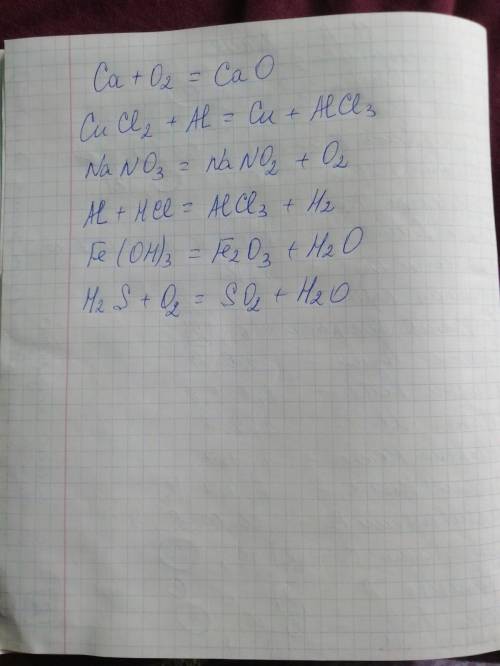 Ca + O2 = CaO
CuCl2 + Al = Cu + AlCl3
NaNO3 = NaNO2 + O2
Al + HCl = AlCl3 + H2
Fe(OH)3 = Fe2O3 + H2O
H2S + O2 = SO2 + H2O